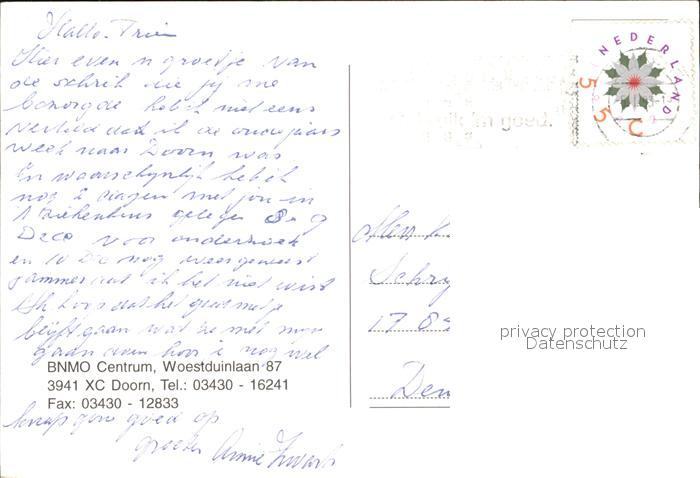 Hallo Trien
Hier even n groetje van
de schrik die jij me
bezorgde heb ik niet eens
verteld dat ik de oudejaars
week naar Doorn was
En waarschijnlijk heb ik
nog 2 dagen met jou in
't Ziekenhuis gelegen 8 en 9
Dec voor onderzoek
en 10 Dec nog weer geweest
jammer dat ik het niet wist
Ik hoop dat het goed met je
blijft gaan wat de met mijn
gaan even hoor i nog wel
BNMO Centrum, Woestduinlaan 87
3941 XC Doorn, Tel.: 03430 - 16241
Fax: 03430 - 12833
knap gou goed op
groeten Annie Zwart
NEDERLAND
55 C
goed.
Mev
Schry
178
Den
privacy protection
Datenschutz